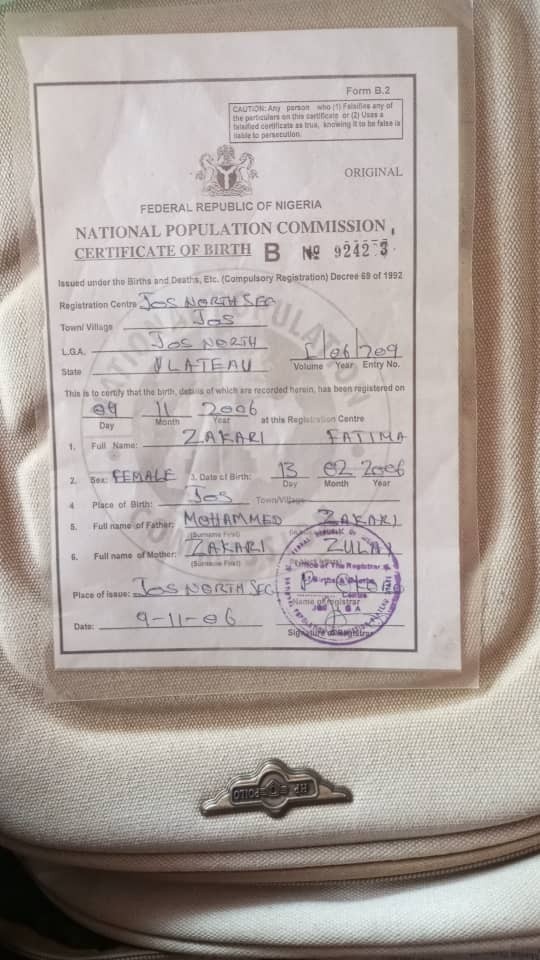 Form B.2
CAUTION: Any person who (1) Falsifies any of
the particulars on this certificate or (2) Uses a
falsified certificate as true, knowing it to be false is
liable to persecution.
ORIGINAL
FEDERAL REPUBLIC OF NIGERIA
NATIONAL POPULATION COMMISSION
CERTIFICATE OF BIRTH B № 92423
Issued under the Births and Deaths, Etc. (Compulsory Registration) Decree 69 of 1992
Registration Centre JOS NORTH SEC
Town/ Village JOS
L.G.A. JOS NORTH
State PLATEAU /06/209
Volume Year Entry No.
This is to certify that the birth, details of which are recorded herein, has been registered on
09 11 2006 at this Registration Centre
Day Month Year
1. Full Name: ZAKARI FATIMA
2. Sex: FEMALE 3. Date of Birth: 13 02 2006
Day Month Year
4 Place of Birth: JOS Town/Village
5. Full name of Father: MOHAMMED ZAKARI
(Surname First)
6. Full name of Mother: ZAKARI ZULAI
(Surname First)
Office of The Registrar
Place of issue: JOS NORTH SEC
Centre
Name of registrar
Date: 9-11-06
Signature of Registrar